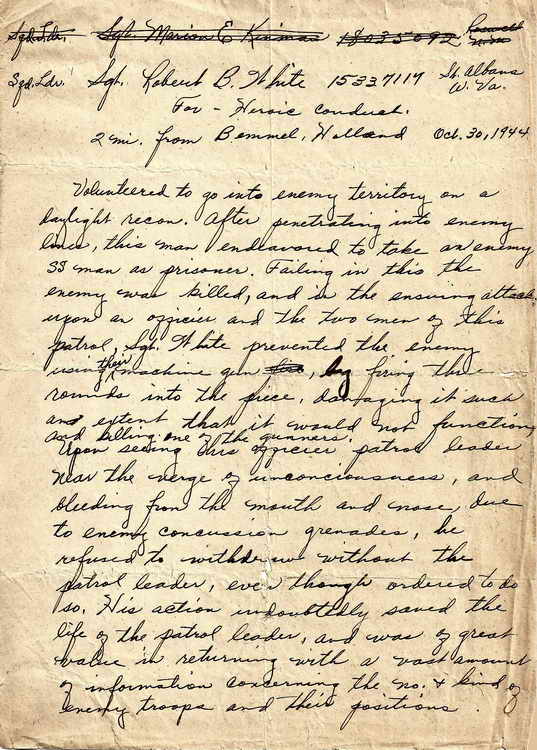 Sqd. Ldr. Sgt. Marion E Kinman 18035092 Roswell N.M.
Sqd. Ldr. Sgt. Robert B. White 15337117 St. Albans W. Va.
For - Heroic conduct.
2 mi. from Bemmel, Holland Oct. 30, 1944
Volunteered to go into enemy territory on a
daylight recon. After penetrating into enemy
lines, this man endeavored to take an enemy
SS man as prisoner. Failing in this the
enemy was killed, and in the ensuing attack
upon an officier and the two men of this
patrol, Sgt. White prevented the enemy
using their machine gun fire, by firing three
rounds into the piece, damaging it such
an extent that it would not function,
and killing one of the gunners.
Upon seeing his officier patrol leader
near the verge of unconciousness, and
bleeding from the mouth and nose, due
to enemy concussion grenades, he
refused to withdraw without the
patrol leader, even though ordered to do
so. His action undoubtedly saved the
life of the patrol leader, and was of great
value in returning with a vast amount
of information concerning the no. & kind of
enemy troops and their positions.